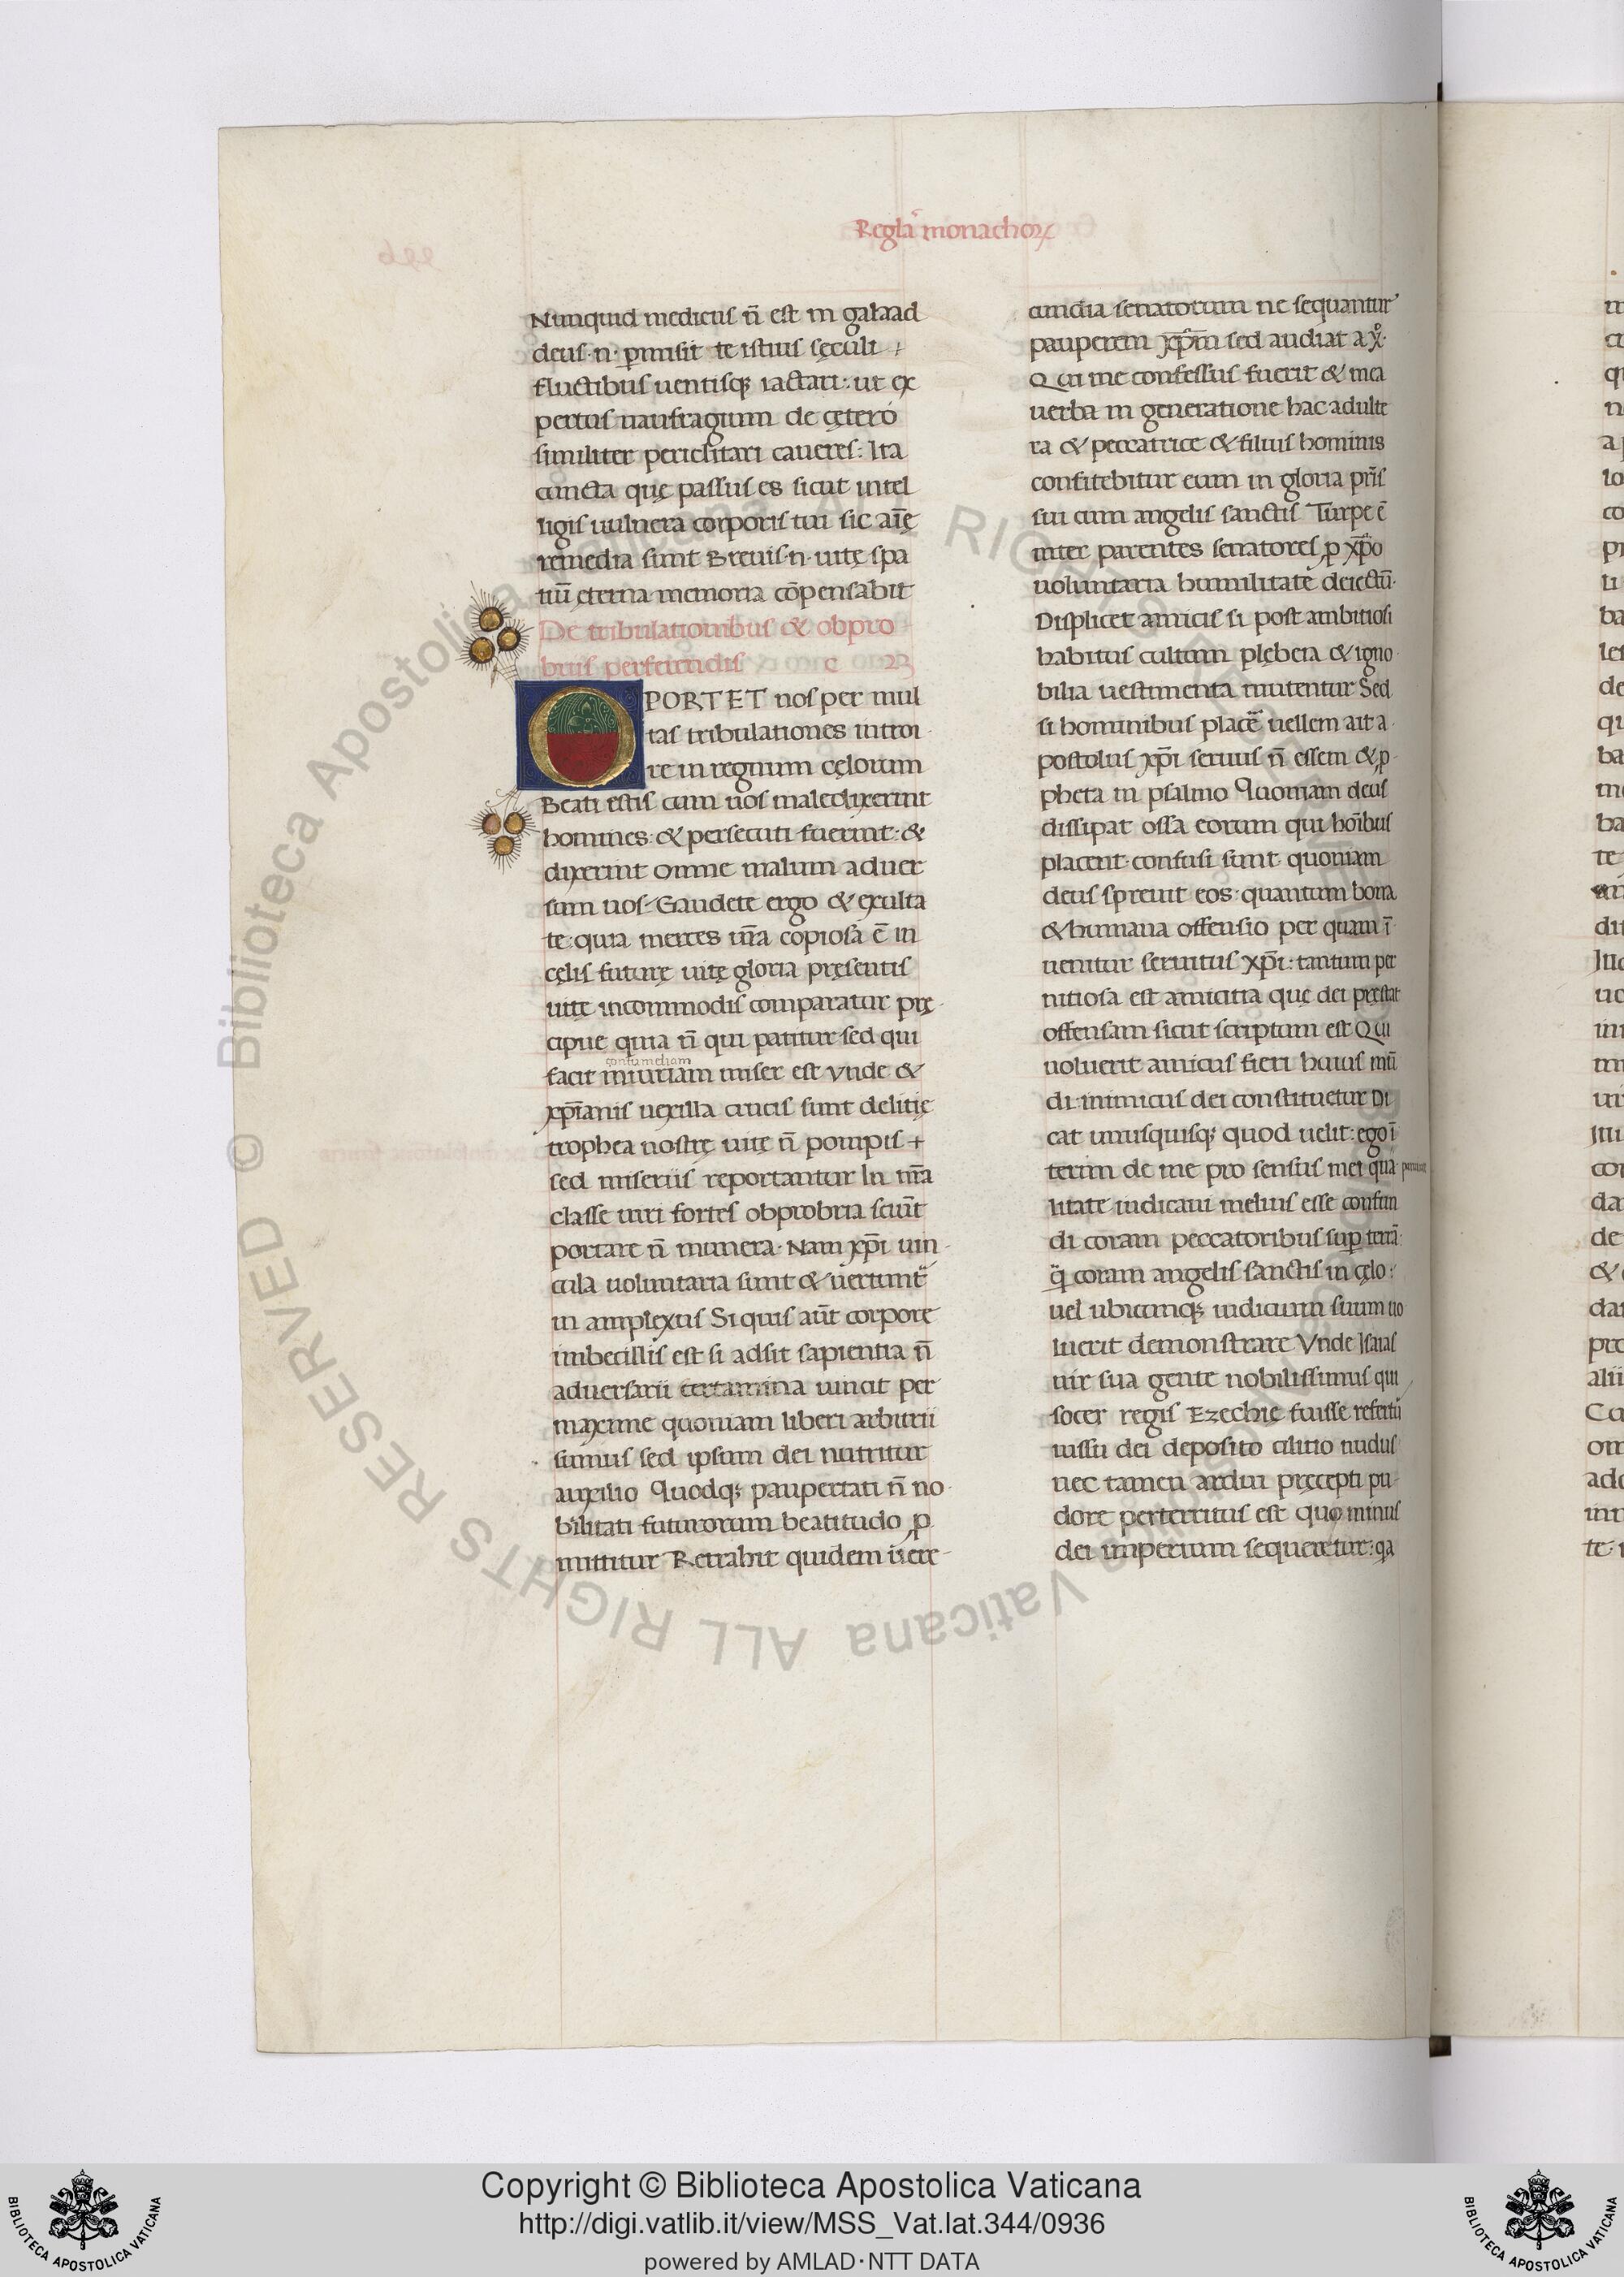 Regła monachoꝝ
Nunquid medicus n̄ est in galaad
deus·n·ꝑmisit te istius sęculi
fluctibus uentisqꝫ iactari: ut ex
pertus naufragium de cętero
similiter periclitari caueres: Ita
cuncta quę passus es sicut intel
ligis uulnera corporis tui sic aīę
remedia sunt Breuis·n·uitę spa
tiū ęterna memoria cōpensabit
De tribulationibus & obpro
briis perferendis c 23
OPORTET nos per mul
tas tribulationes introi
re in regnum cęlorum
Beati estis cum uos maledixerint
homines: & persecuti fuerint: &
dixerint omne malum aduer
sum uos: Gaudete ergo & exulta
te: quia merces ūra copiosa ē in
cęlis futurę uitę gloria pręsentis
uitę incommodis comparatur prę
cipue quia n̄ qui patitur sed qui
contumeliam
facit iniuriam miser est Vnde &
xp̄ianis uexilla crucis sunt delitię
trophea nostrę uitę n̄ pompis +
sed miseriis reportantur In nr̄a
classe uiri fortes obprobria sciūt
portare n̄ munera· Nam xp̄i uin
cula uoluntaria sunt & uertunt̄
in amplexus Si quis aūt corpore
imbecillis est si adsit sapientia n̄
aduersarii certamina uincit per
maxime quoniam liberi arbitrii
sumus sed ipsum dei nutritur
auxilio Quodqꝫ paupertati n̄ no
bilitati futurorum beatitudo ꝓ
mittitur Retrahit quidem uere
cundia senatorum ne sequantur
pauperem xp̄m sed audiat a xͦ·
Qui me confessus fuerit & mea
uerba in generatione hac adulte
ra & peccatrice & filius hominis
confitebitur eum in gloria pr̄is
sui cum angelis sanctis Turpe ē
inter parentes senatores ꝓ xp̄o
uoluntaria humilitate deiectū·
Displicet amicis si post ambitiosi
habitus cultum plębeia & igno
bilia uestimenta mutentur Sed
si hominibus placē uellem ait a
postolus xp̄i seruus n̄ essem & ꝓ
pheta in psalmo Quoniam deus
dissipat ossa eorum qui hoībus
placent· confusi sunt· quoniam
deus spreuit eos· quantum bona
& humana offensio per quam ī
uenitur seruitus xp̄i: tantum per
nitiosa est amicitia quę dei pręstat
offensam sicut scriptum est Qui
uoluerit amicus fieri huius mū
di· inimicus dei constituetur Di
cat unusquisqꝫ quod uelit: ego ī
terim de me pro sensus mei qua
litate iudicaui melius esse confun
di coram peccatoribus suꝑ terrā
q̄ coram angelis sanctis in cęlo:
uel ubicumqꝫ iudicium suum uo
luerit demonstrare Vnde Isaias
uir sua gente nobilissimus qui
socer regis Ezechię fuisse refertū
iussu dei deposito cilitio nudus
nec tamen ardui pręcepti pu
dore perterritus est quo minus
dei imperium sequeretur: qa
Copyright © Biblioteca Apostolica Vaticana
http://digi.vatlib.it/view/MSS_Vat.lat.344/0936
powered by AMLAD·NTT DATA
BIBLIOTECA APOSTOLICA VATICANA
BIBLIOTECA APOSTOLICA VATICANA
© Biblioteca Apostolica Vaticana ALL RIGHTS RESERVED